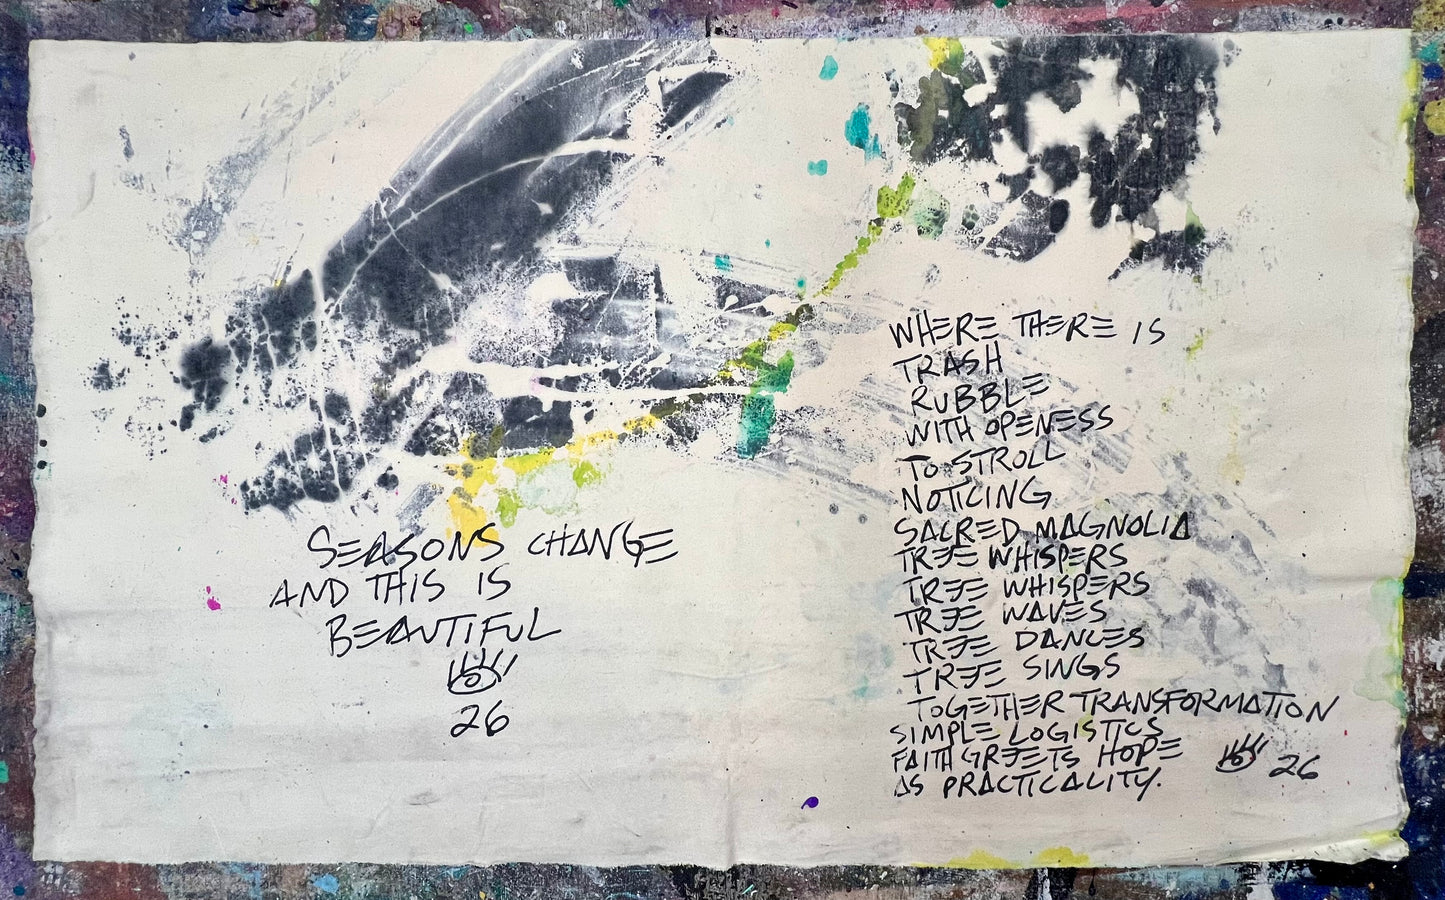 SEASONS CHANGE
AND THIS IS
BEAUTIFUL
26
WHERE THERE IS
TRASH
RUBBLE
WITH OPENESS
TO STROLL
NOTICING
SACRED MAGNOLIA
TREE WHISPERS
TREE WHISPERS
TREE WAVES
TREE DANCES
TREE SINGS
TOGETHER TRANSFORMATION
SIMPLE LOGISTICS
FAITH GREETS HOPE
AS PRACTICALITY.
26